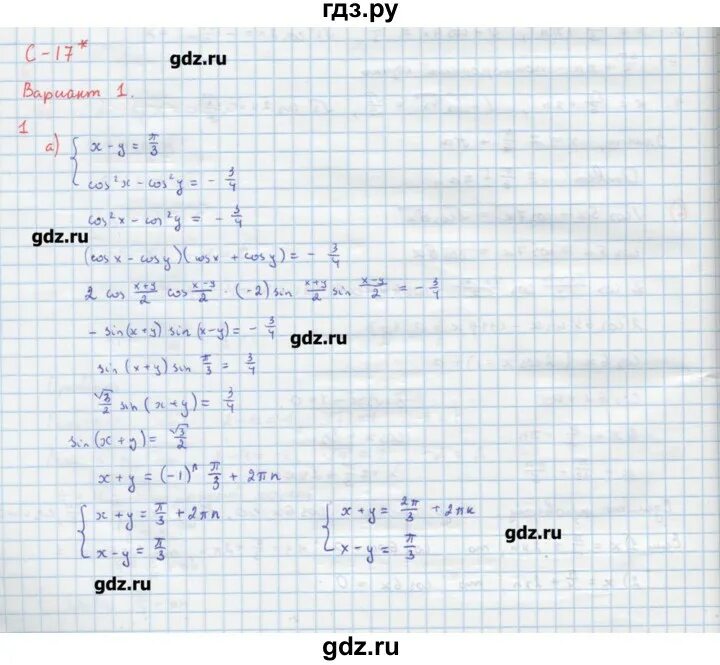 гдз.ру
С-17*
gdz.ru
Вариант 1.
1
а) { x - y = π/3
cos²x - cos²y = - 3/4
cos²x - cos²y = - 3/4
gdz.ru
(cosx - cosy)(cosx + cosy) = - 3/4
2 cos (x+y)/2 cos (x-y)/2 · (-2) sin (x+y)/2 sin (x-y)/2 = - 3/4
- sin(x+y) sin(x-y) = - 3/4
gdz.ru
sin(x+y) sin π/3 = 3/4
√3/2 sin(x+y) = 3/4
sin(x+y) = √3/2
x+y = (-1)ⁿ π/3 + 2πn
{ x+y = π/3 + 2πn { x+y = 2π/3 + 2πn
gdz.ru
x-y = π/3 x-y = π/3
gdz.ru
gdz.ru